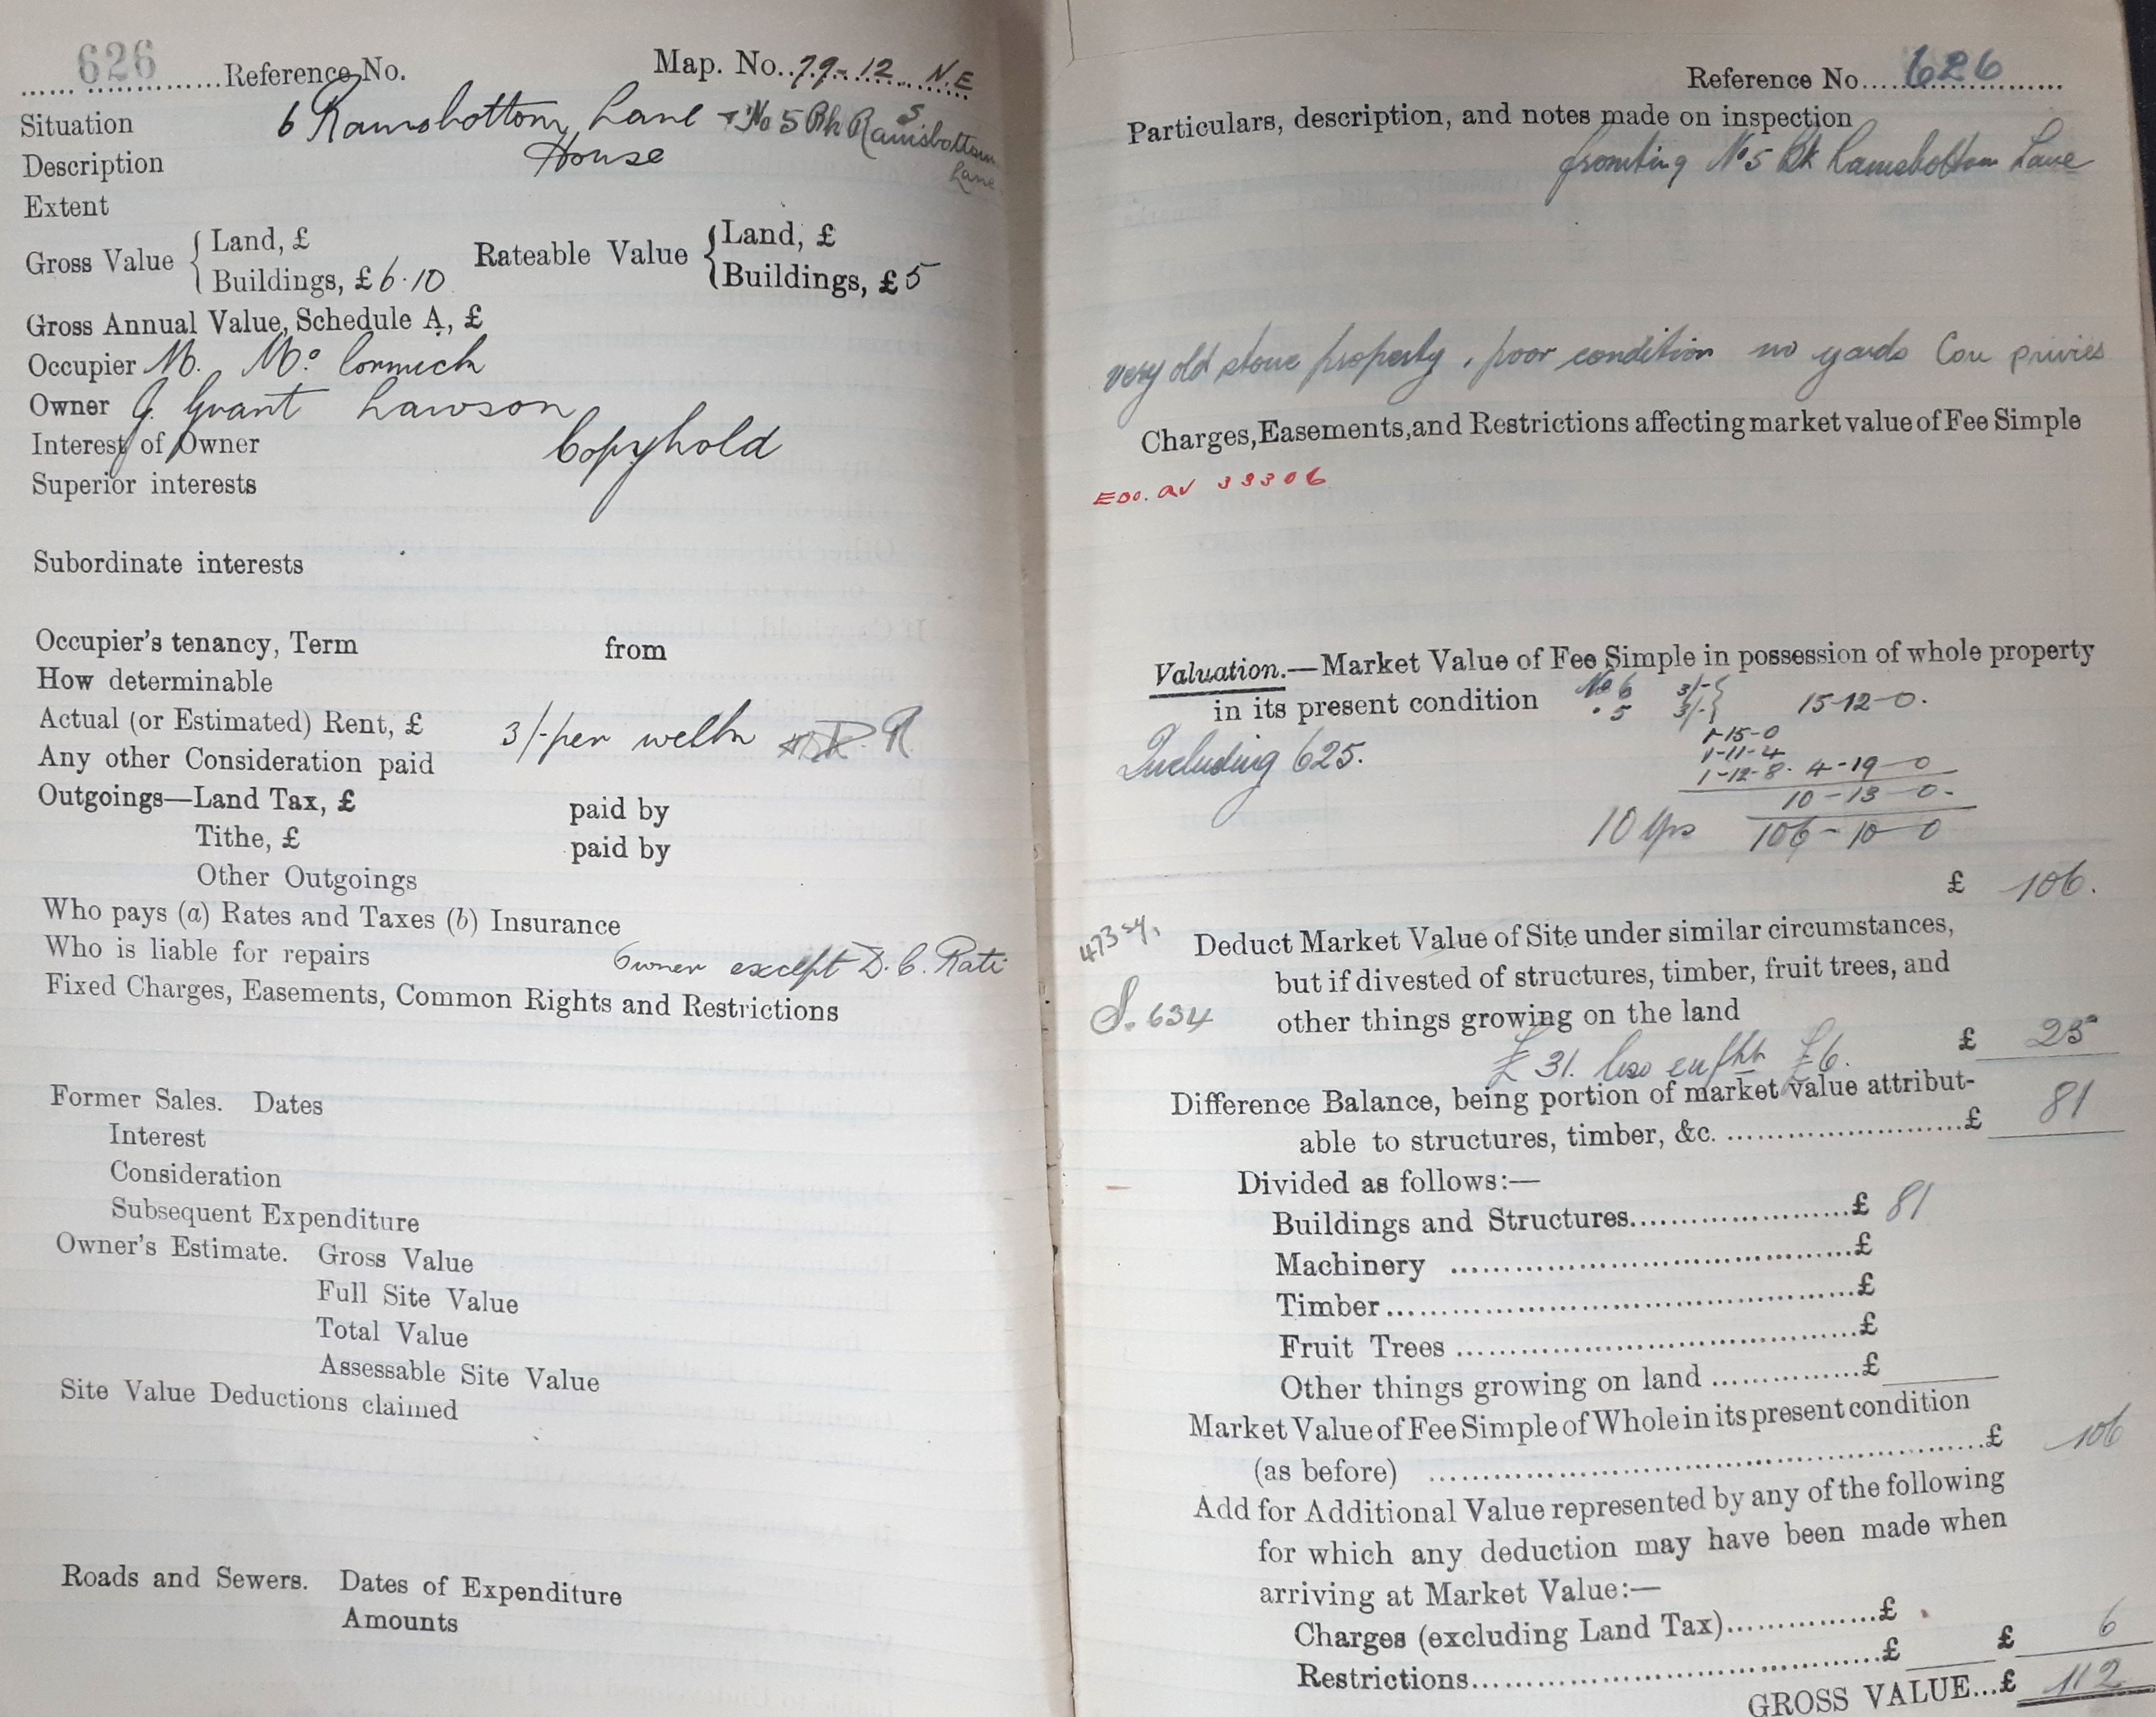 626 Reference No. Map. No. 79-12 N.E
Situation 6 Ramsbottom Lane + No 5 Bk Ramsbottom
Lane
S
Description House
Extent
Gross Value { Land, £ Rateable Value { Land, £
Buildings, £ 6.10 Buildings, £ 5
Gross Annual Value, Schedule A, £
Occupier M. Mc Cormick
Owner J. Grant Lawson
Interest of Owner Copyhold
Superior interests
Subordinate interests
Occupier's tenancy, Term from
How determinable
Actual (or Estimated) Rent, £ 3/- per R
Any other Consideration paid
Outgoings—Land Tax, £ paid by
Tithe, £ paid by
Other Outgoings
Who pays (a) Rates and Taxes (b) Insurance
Who is liable for repairs Owner except D.C. Rate
Fixed Charges, Easements, Common Rights and Restrictions
Former Sales. Dates
Interest
Consideration
Subsequent Expenditure
Owner's Estimate. Gross Value
Full Site Value
Total Value
Assessable Site Value
Site Value Deductions claimed
Roads and Sewers. Dates of Expenditure
Amounts
Reference No. 626
Particulars, description, and notes made on inspection
fronting No 5 Bk Ramsbottom Lane
very old stone property, poor condition no yards Con privies
Charges, Easements, and Restrictions affecting market value of Fee Simple
33306
Valuation.—Market Value of Fee Simple in possession of whole property
in its present condition No 6 3/- }
" 5 3/- } 15-12-0.
Including 625.
1-15-0
1-11-4
1-12-8. 4-19-0
10-13-0.
10 yps 106-10-0
£ 106.
473 sy.
Deduct Market Value of Site under similar circumstances,
but if divested of structures, timber, fruit trees, and
S. 634 other things growing on the land
£31. less £6. £ 25
Difference Balance, being portion of market value attribut-
able to structures, timber, &c. £ 81
Divided as follows:—
Buildings and Structures £ 81
Machinery £
Timber £
Fruit Trees £
Other things growing on land £
Market Value of Fee Simple of Whole in its present condition
(as before) £ 106
Add for Additional Value represented by any of the following
for which any deduction may have been made when
arriving at Market Value:—
Charges (excluding Land Tax) £
Restrictions £ £ 6
GROSS VALUE...£ 112